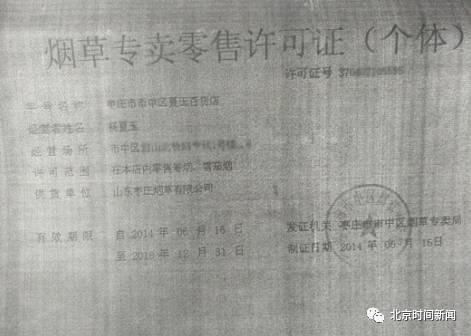 烟草专卖零售许可证（个体）
许可证号
字号名称 枣庄市市中区夏玉百货店
经营者姓名 杨夏玉
经营场所 市中区
许可范围 在本店内零售卷烟、雪茄烟
供货单位 山东枣庄烟草有限公司
有效期限 自 2014 年 06 月 16 日
至 2018 年 12 月 31 日
发证机关 枣庄市市中区烟草专卖局
制证日期 2014 年 06 月 16日
北京时间新闻